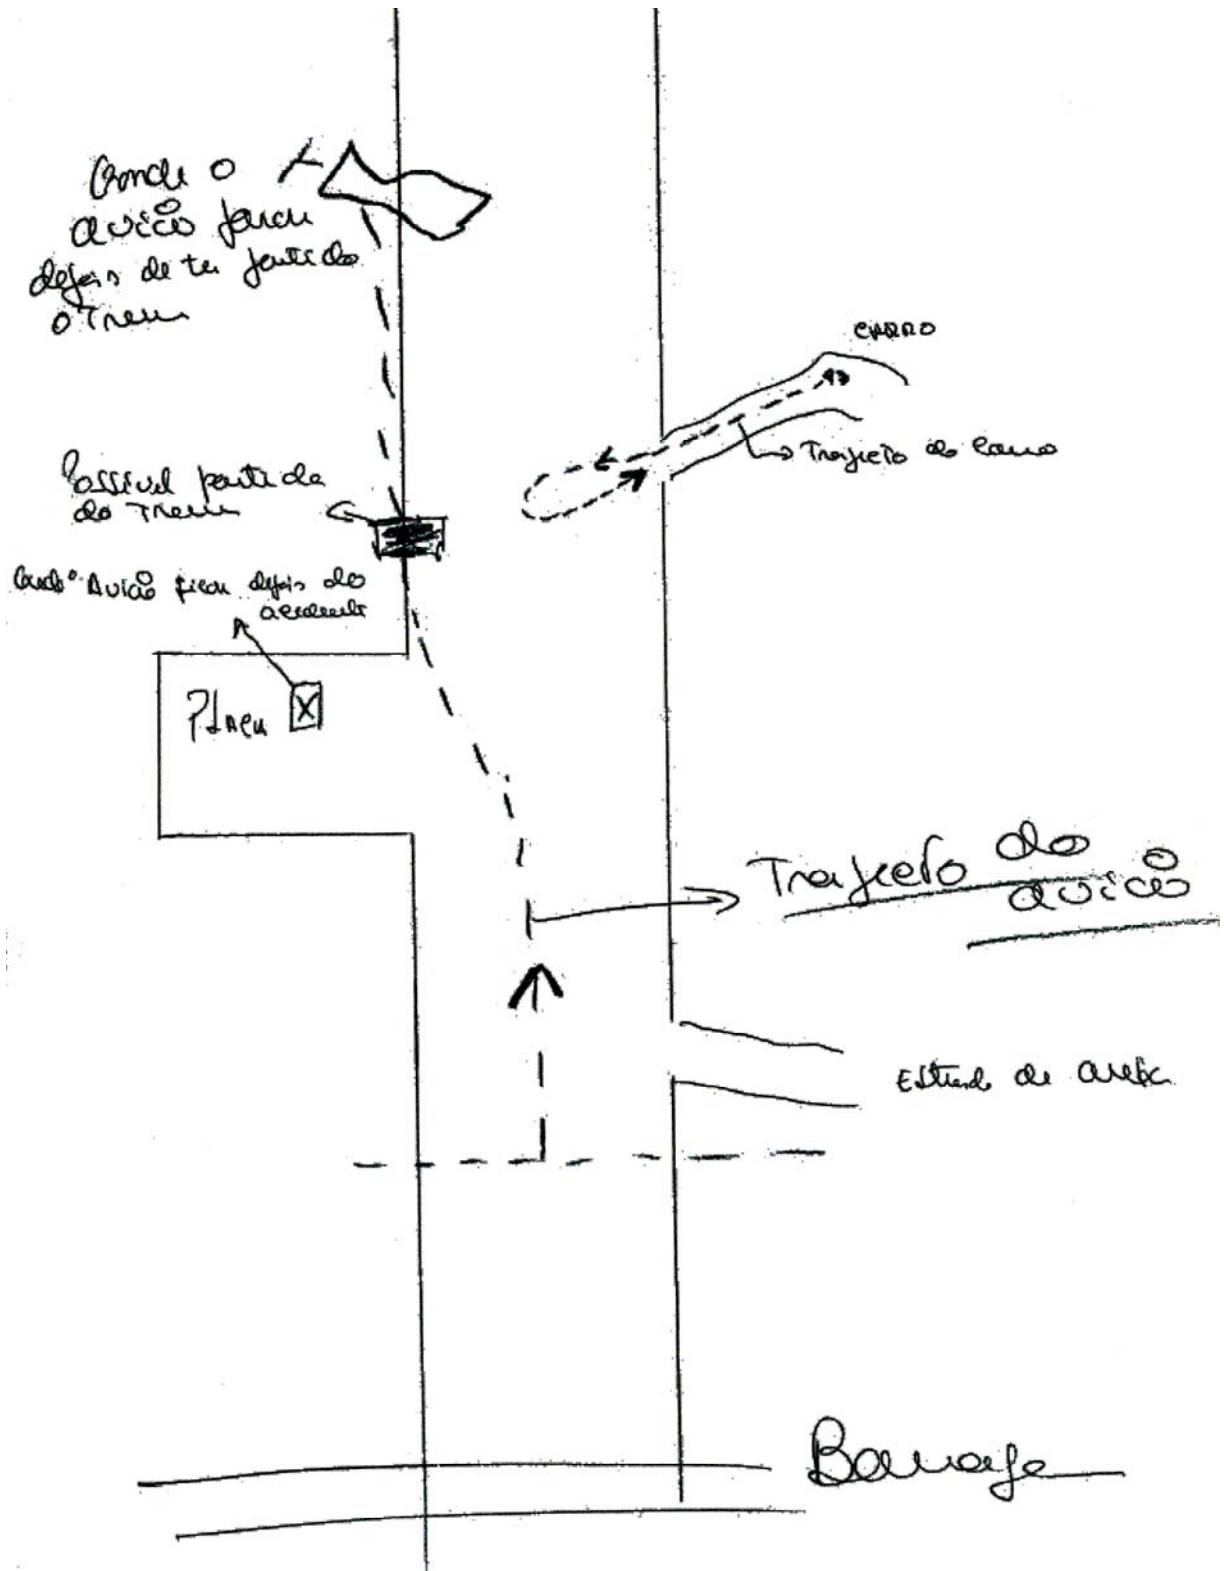 Onde o
avião parou
depois de ter partido
o Trem
CARRO
Trajeto do Carro
Possivel partida
do Trem
Avião ficou depois do
acidente
Placa
X
Trajeto do
avião
Estrada de areia
Barragem